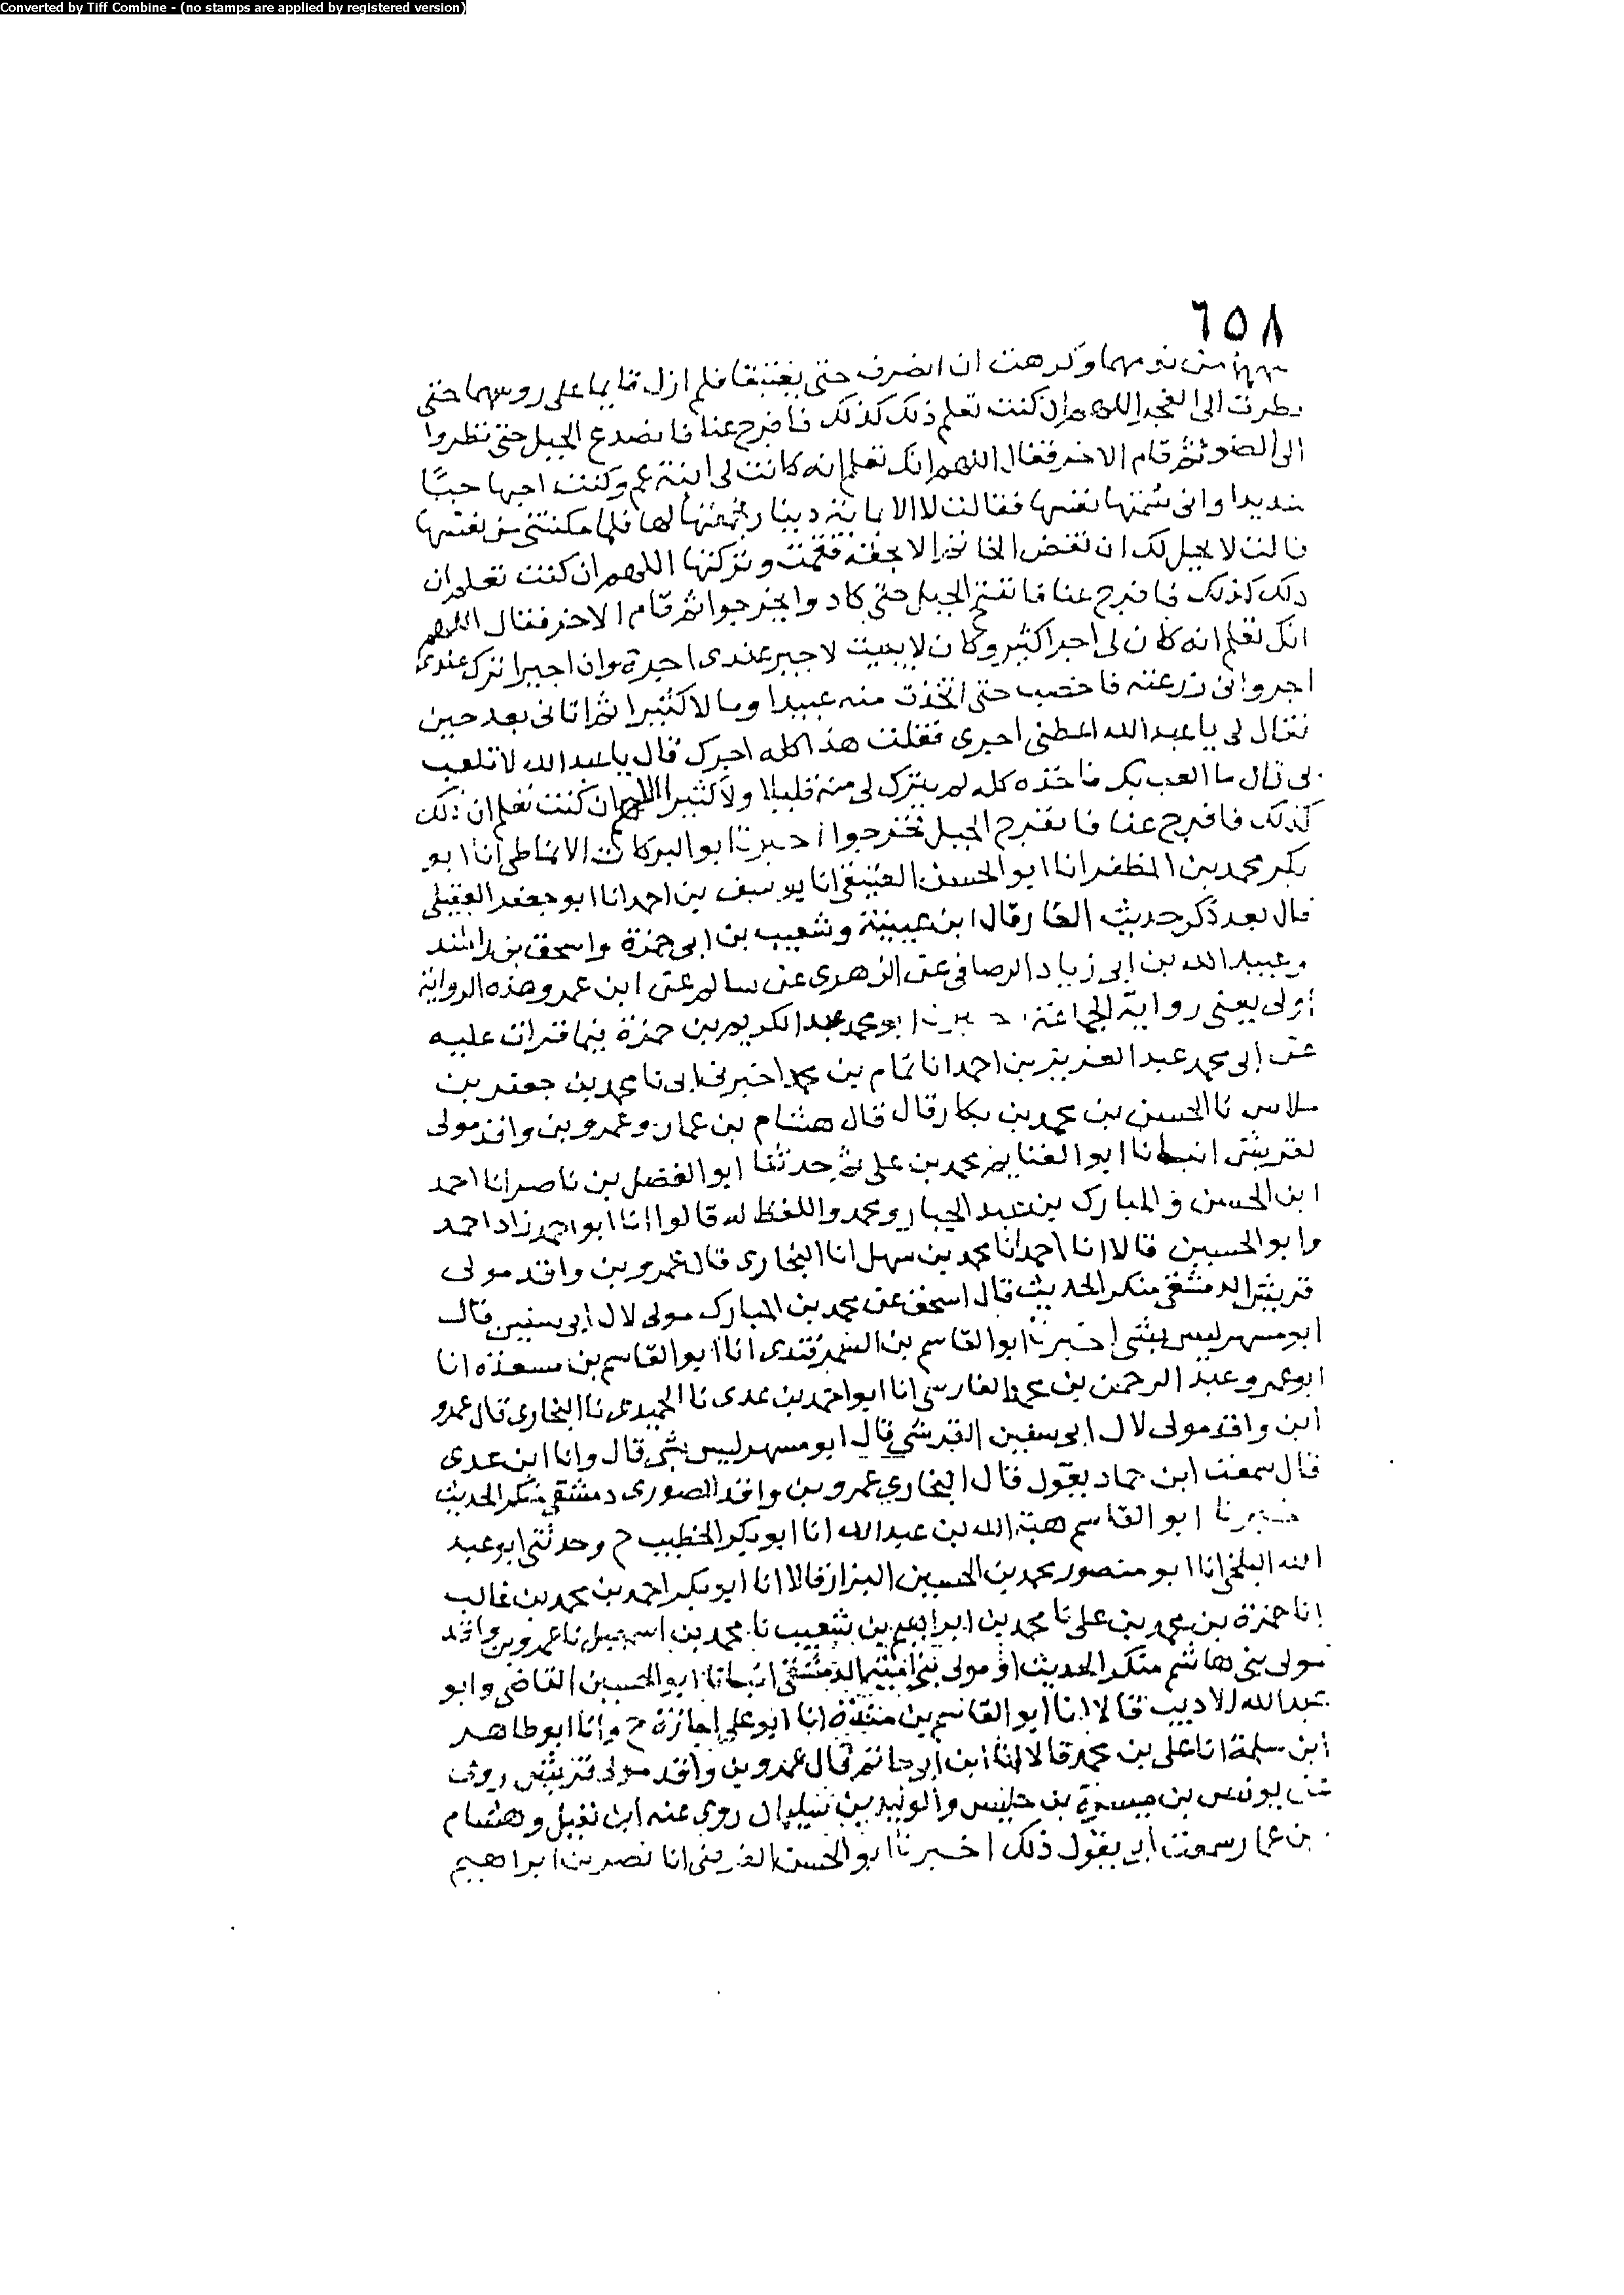 Converted by Tiff Combine - (no stamps are applied by registered version)
٦٥٨
من نومهما وكرهت ان انصرف حتى يغتبقا فلم ازل قايما على روسهما حتى
نظرت الى الفجر اللهم ان كنت تعلم ذلك كذلك فافرج عنا فانصدع الجبل حتى نظروا
الى الضو ثم قام الاخر فقال اللهم انك تعلم انه كانت لى ابنة عم وكنت احبها حبا
شديدا وانى سمتها نفسها فقالت لا الا بماية دينار فجمعتها لها فلما مكنتنى من نفسها
قالت لا يحل لك ان تفض الخاتم الا بحقه فقمت وتركتها اللهم ان كنت تعلم ان
ذلك كذلك فافرج عنا فانفتح الجبل حتى كادوا يخرجوا ثم قام الاخر فقال اللهم
انك تعلم انه كان لى اجرا كثير وكان لا يبيت لاجير عندى اجرة وان اجيرا ترك عندى
اجره وانى زرعته فاخصب حتى اتخذت منه عبيدا ومالا كثيرا ثم اتانى بعد حين
فقال لى يا عبدالله اعطنى اجرى فقلت هذا كله اجرك قال يا عبدالله لا تلعب
بى قال ما العب بك فاخذه كله لم يترك لى منه قليلا ولا كثيرا اللهم ان كنت تعلم ان ذلك
كذلك فافرج عنا فانفرج الجبل فخرجوا اخبرنا ابو البركات الانماطى انا ابو
بكر محمد بن المظفر انا ابو الحسن العتيقى انا يوسف بن احمد انا ابو جعفر العقيلى
قال بعد ذكر حديث الغار قال ابن عيينة وشعيب بن ابى حمزة واسحق بن راشد
وعبيد الله بن ابى زياد الرصافى عن الزهرى عن سالم عن ابن عمر وهذه الرواية
اولى يعنى رواية الجماعة اخبرنا ابو محمد عبدالكريم بن حمزة فيما قرات عليه
عن ابى محمد عبد العزيز بن احمد انا تمام بن محمد اخبرنى ابى نا محمد بن جعفر بن
ملاس نا الحسن بن محمد بن بكار قال قال هشام بن عمار وعمرو بن واقد مولى
لقريش انبانا ابو الغنايم محمد بن على ثم حدثنا ابو الفضل بن ناصر انا احمد
ابن الحسن والمبارك بن عبد الجبار ومحمد واللفظ له قالوا انا ابو احمد زاد احمد
وابو الحسين قالا انا احمد انا محمد بن سهل انا البخارى قال عمرو بن واقد مولى
قريش الدمشقى منكر الحديث قال اسحق عن محمد بن المبارك مولى لال ابى سفين قال
ابو مسهر ليس بشى اخبرنا ابو القاسم بن السمرقندى انا ابو القاسم بن مسعدة انا
ابو عمرو عبد الرحمن بن محمد الفارسى انا ابو احمد بن عدى نا الجنيدى نا البخارى قال عمرو
ابن واقد مولى لال ابى سفين القرشى قال ابو مسهر ليس بشى قال وانا ابن عدى
قال سمعت ابن حماد يقول قال البخاري عمرو بن واقد الصورى دمشقى منكر الحديث
اخبرنا ابو القاسم هبة الله بن عبدالله انا ابو بكر الخطيب ح وحدثنى ابو عبد
الله البلخى انا ابو منصور محمد بن الحسين البزاز قالا انا ابو بكر احمد بن محمد بن غالب
انا حمزة بن محمد بن على نا محمد بن ابراهيم بن شعيب نا محمد بن اسمعيل نا عمرو بن واقد
مولى بنى هاشم منكر الحديث او مولى بنى امية الدمشقى انبانا ابو الحسين القاضى وابو
عبدالله الاديب قالا انا ابو القاسم بن مندة انا ابو على اجازة ح وانا ابو طاهر
ابن سلمة انا على بن محمد قالا انا ابن ابى حاتم قال عمرو بن واقد مولى قريش روى
عن يونس بن ميسرة بن حلبس والوليد بن سليمان روى عنه ابن نفيل وهشام
بن عمار سمعت ابى يقول ذلك اخبرنا ابو الحسن الفرضى انا نصر بن ابراهيم